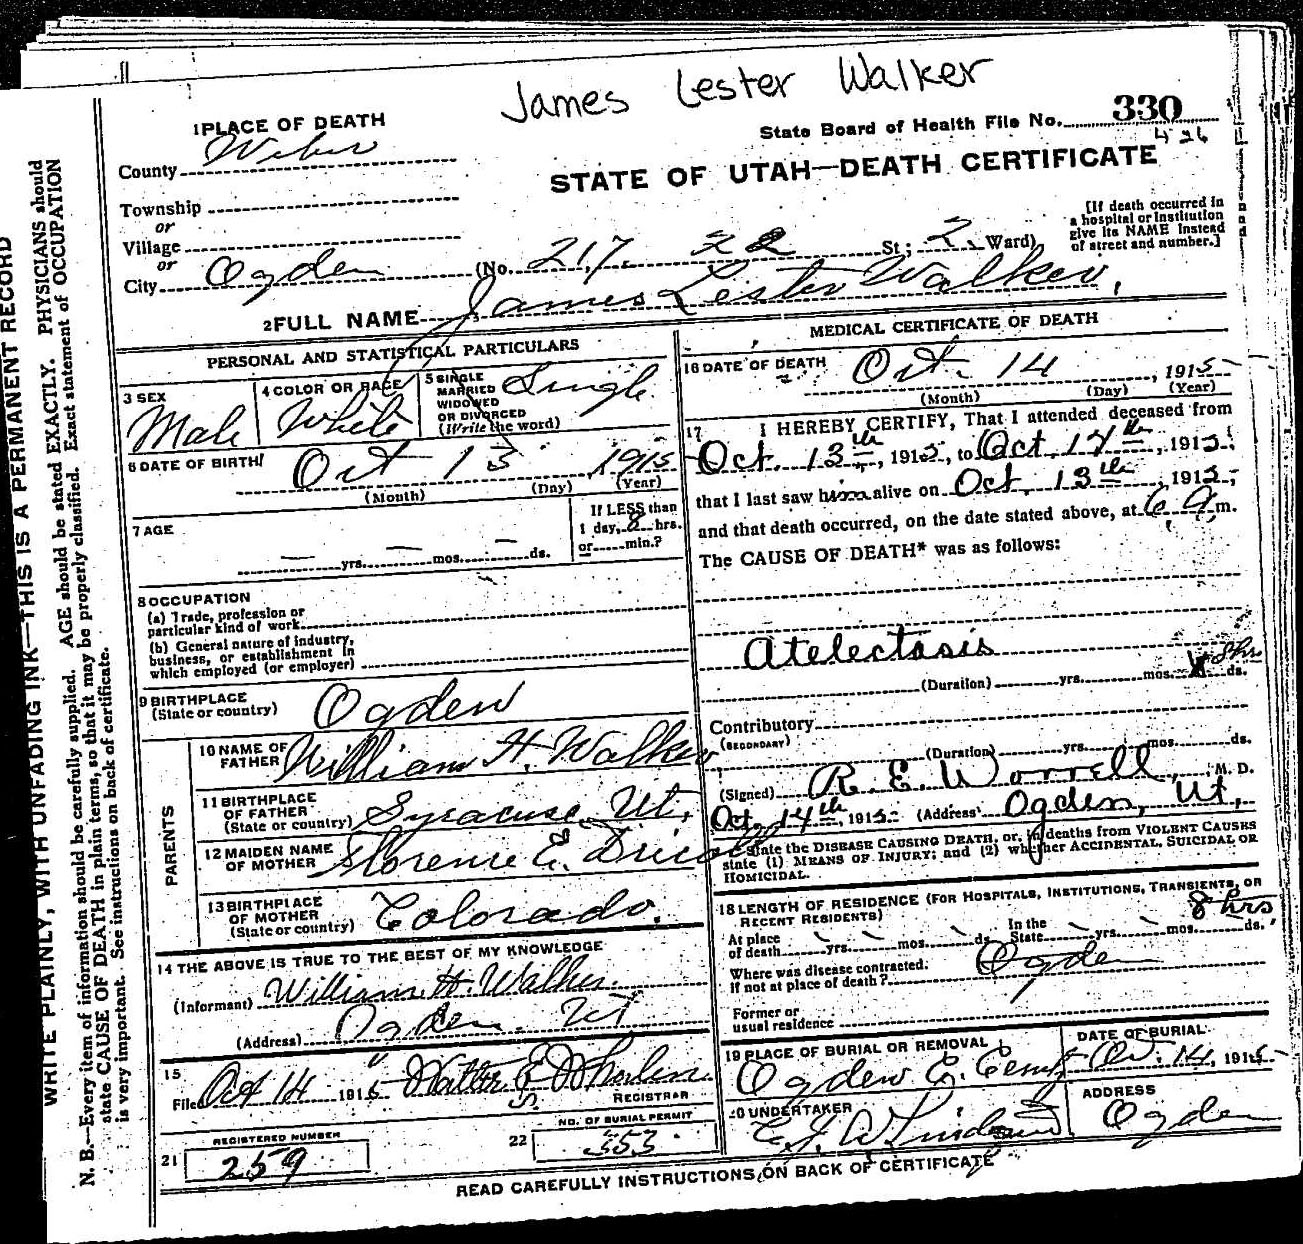 James Lester Walker
1 PLACE OF DEATH
State Board of Health File No. 330
426
County Weber
STATE OF UTAH—DEATH CERTIFICATE
Township
or
Village
or
City Ogden (No. 217. 22 St; 2 Ward)
[If death occurred in
a hospital or institution
give its NAME instead
of street and number.]
2 FULL NAME James Lester Walker,
PERSONAL AND STATISTICAL PARTICULARS
3 SEX
Male
4 COLOR OR RACE
White
5 SINGLE
MARRIED
WIDOWED
OR DIVORCED
(Write the word)
Single
6 DATE OF BIRTH
Oct 13, 1915
(Month) (Day) (Year)
7 AGE
yrs. mos. ds.
If LESS than
1 day, 8 hrs.
or min.?
8 OCCUPATION
(a) Trade, profession or
particular kind of work
(b) General nature of industry,
business, or establishment in
which employed (or employer)
9 BIRTHPLACE
(State or country) Ogden
PARENTS
10 NAME OF
FATHER William H. Walker
11 BIRTHPLACE
OF FATHER
(State or country) Syracuse, Ut,
12 MAIDEN NAME
OF MOTHER Florence E.
13 BIRTHPLACE
OF MOTHER
(State or country) Colorado.
14 THE ABOVE IS TRUE TO THE BEST OF MY KNOWLEDGE
(Informant) William H. Walker.
(Address) Ogden. Ut
15
Filed Oct 14 1915 Walter
REGISTRAR
REGISTERED NUMBER
21 259
NO. OF BURIAL PERMIT
22 353
MEDICAL CERTIFICATE OF DEATH
16 DATE OF DEATH
Oct. 14, 1915
(Month) (Day) (Year)
17 I HEREBY CERTIFY, That I attended deceased from
Oct. 13th, 1915, to Oct. 14th, 1915;
that I last saw him alive on Oct. 13th, 1915;
and that death occurred, on the date stated above, at 6 a.m.
The CAUSE OF DEATH* was as follows:
Atelectasis
8 hrs
(Duration) yrs. mos. ds.
Contributory
(SECONDARY)
(Duration) yrs. mos. ds.
(Signed) R. E. Worrell, M. D.
Oct. 14th, 1915 (Address) Ogden, Ut,
state the DISEASE CAUSING DEATH, or, in deaths from VIOLENT CAUSES
state (1) MEANS OF INJURY; and (2) whether ACCIDENTAL, SUICIDAL OR
HOMICIDAL.
18 LENGTH OF RESIDENCE (FOR HOSPITALS, INSTITUTIONS, TRANSIENTS, OR
RECENT RESIDENTS)
8 hrs,
At place
of death yrs. mos. ds. In the
State yrs. mos. ds.
Where was disease contracted.
If not at place of death? Ogden
Former or
usual residence
19 PLACE OF BURIAL OR REMOVAL
Ogden C. Cemt
DATE OF BURIAL
Oct. 14, 1915
20 UNDERTAKER
ADDRESS
Ogden
READ CAREFULLY INSTRUCTIONS ON BACK OF CERTIFICATE
WRITE PLAINLY, WITH UNFADING INK—THIS IS A PERMANENT RECORD
N. B.—Every item of information should be carefully supplied. AGE should be stated EXACTLY. PHYSICIANS should
state CAUSE OF DEATH in plain terms, so that it may be properly classified. Exact statement of OCCUPATION
is very important. See instructions on back of certificate.